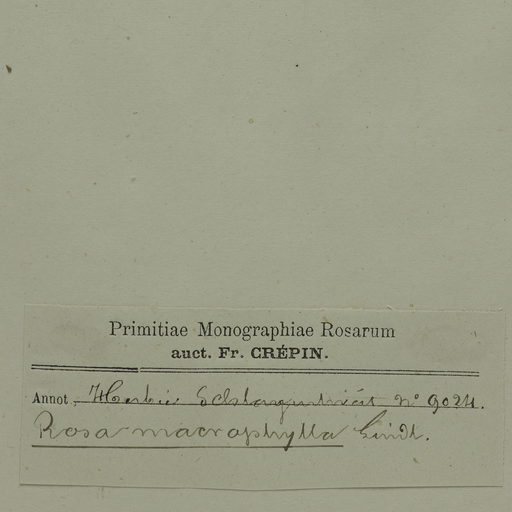 Primitiae Monographiae Rosarum
auct. Fr. CRÉPIN.
Annot. Herbier Schlagintweit n° 9024.
Rosa macrophylla Lindl.